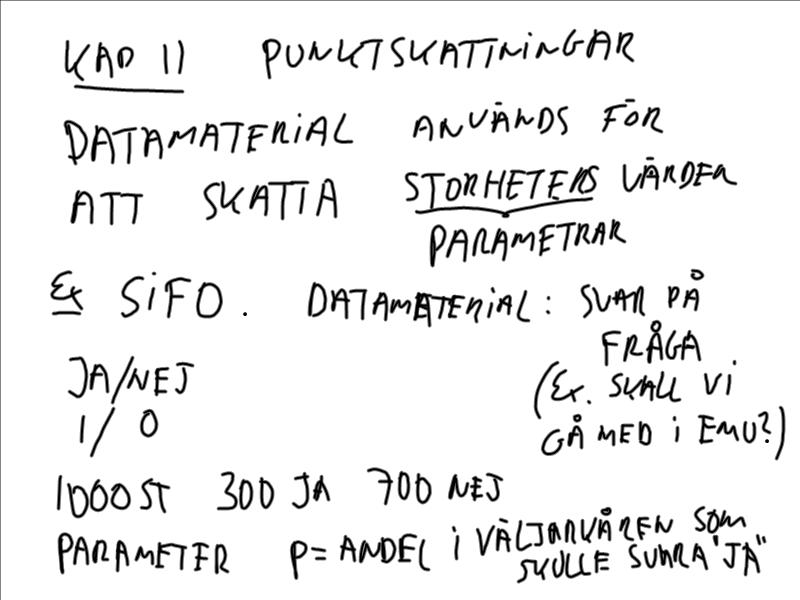 KAP 11 PUNKTSKATTNINGAR
DATAMATERIAL ANVÄNDS FÖR
ATT SKATTA STORHETERS VÄRDEN
PARAMETRAR
Ex SIFO. DATAMATERIAL: SVAR PÅ
FRÅGA
JA/NEJ (Ex. SKALL VI
1/0 GÅ MED I EMU?)
1000 ST 300 JA 700 NEJ
PARAMETER P = ANDEL I VÄLJARKÅREN SOM
SKULLE SVARA "JA"